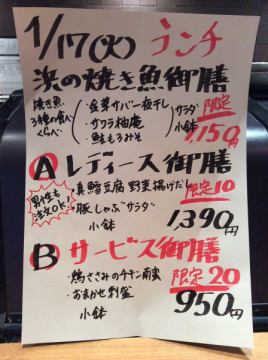 1/17(火) ランチ
浜の焼き魚御膳
焼き魚
3種の食べ
くらべ
・金華サバ一夜干し
・サワラ柚庵
・鮭もろみそ
サラダ
小鉢
限定
1,150円
A レディース御膳
男性も
注文OK!
・真鱈豆腐野菜揚げだし
限定10
・豚しゃぶサラダ
小鉢
1,390円
B サービス御膳
・鶏ささみのチキン南蛮
限定20
・おまかせ刺盛
小鉢
950円